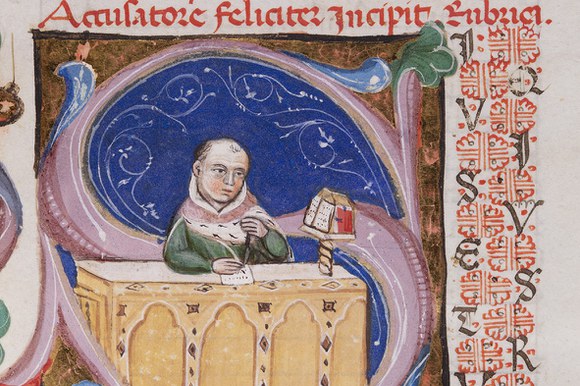 Accusatorē feliciter Incipit Rubrici.
I V S E T
Q I V S R